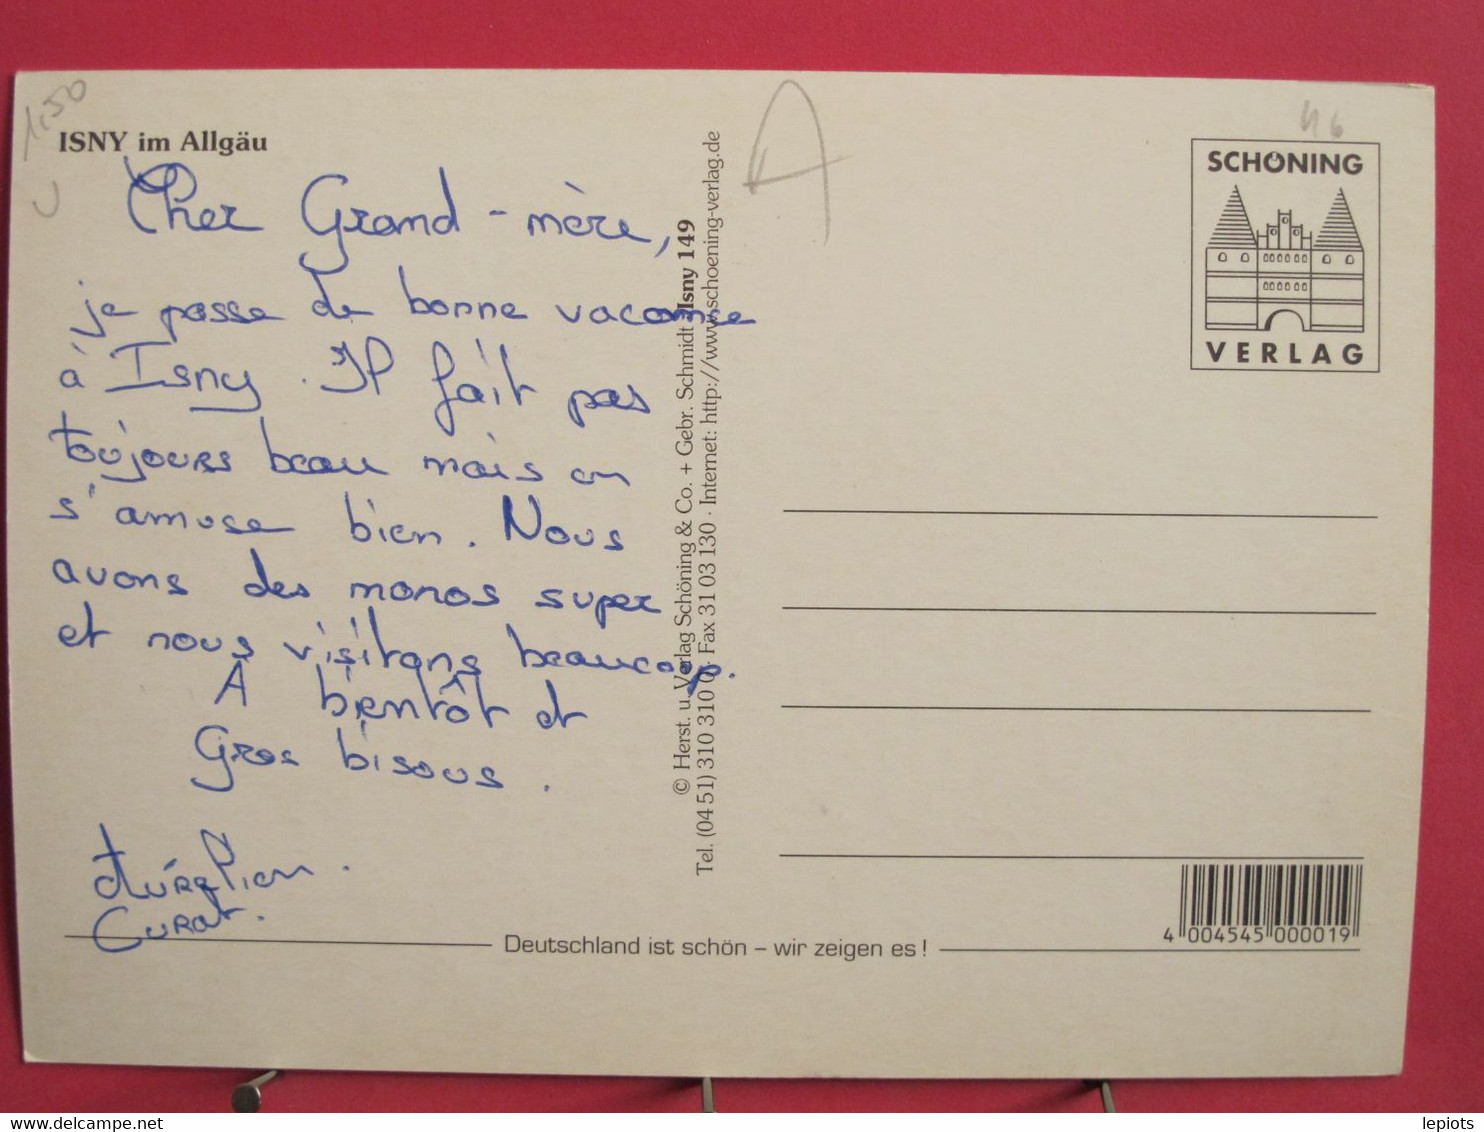 1,50
ISNY im Allgäu
Cher Grand-mère,
je passe de bonne vacance
à Isny. Il fait pas
toujours beau mais on
s'amuse bien. Nous
avons des monos super
et nous visitons beaucoup.
À bientôt et
Gros bisous.
Aurélien
Curat.
© Herst. u. Verlag Schöning & Co. + Gebr. Schmidt · Isny 149
Tel. (04 51) 310 310 0 · Fax 31 03 130 · Internet: http://www.schoening-verlag.de
A
46
SCHÖNING
VERLAG
4 004545 000019
Deutschland ist schön – wir zeigen es !
delcampe.net
lepiots